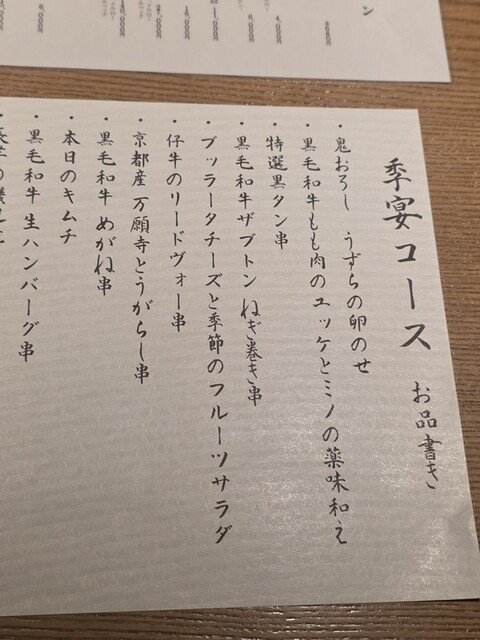 季宴コース お品書き
・鬼おろし うずらの卵のせ
・黒毛和牛もも肉のユッケとミノの薬味和え
・特選黒タン串
・黒毛和牛ザブトン ねぎ巻き串
・ブッラータチーズと季節のフルーツサラダ
・仔牛のリードヴォー串
・京都産 万願寺とうがらし串
・黒毛和牛 めがね串
・本日のキムチ
・黒毛和牛 生ハンバーグ串